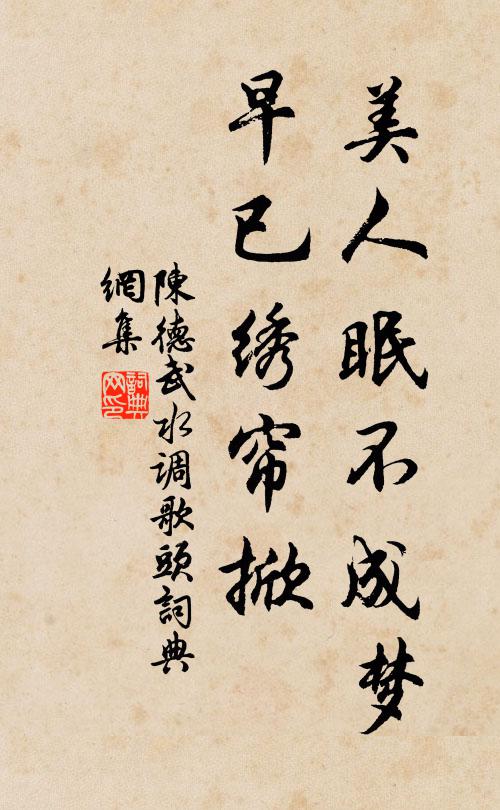 美人眠不成梦
早已绣帘掀
陳德武水调歌頭詞典
網集
詞典
网印